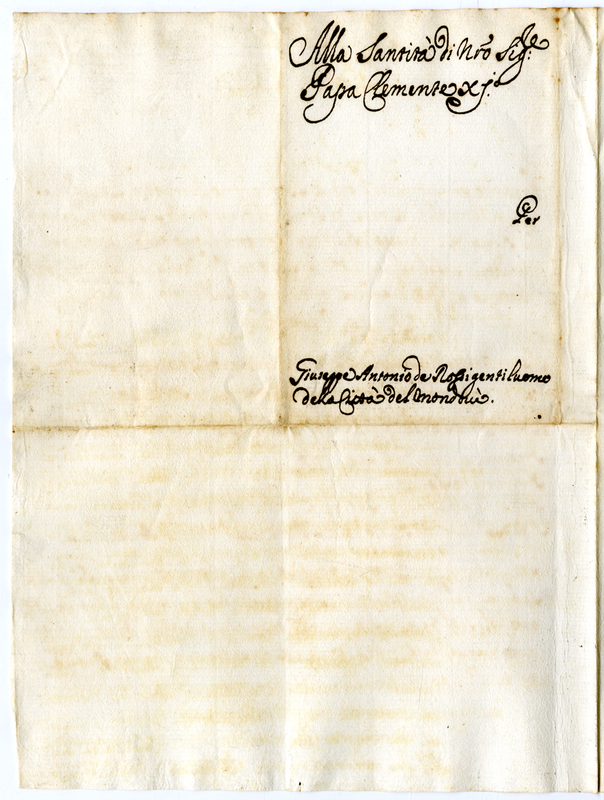 Alla Santità di Nrõ Sig.re
Papa Clemente xj.o
Per
Giuseppe Antonio de Rossi gentilhuomo
della Città del Mondouì.